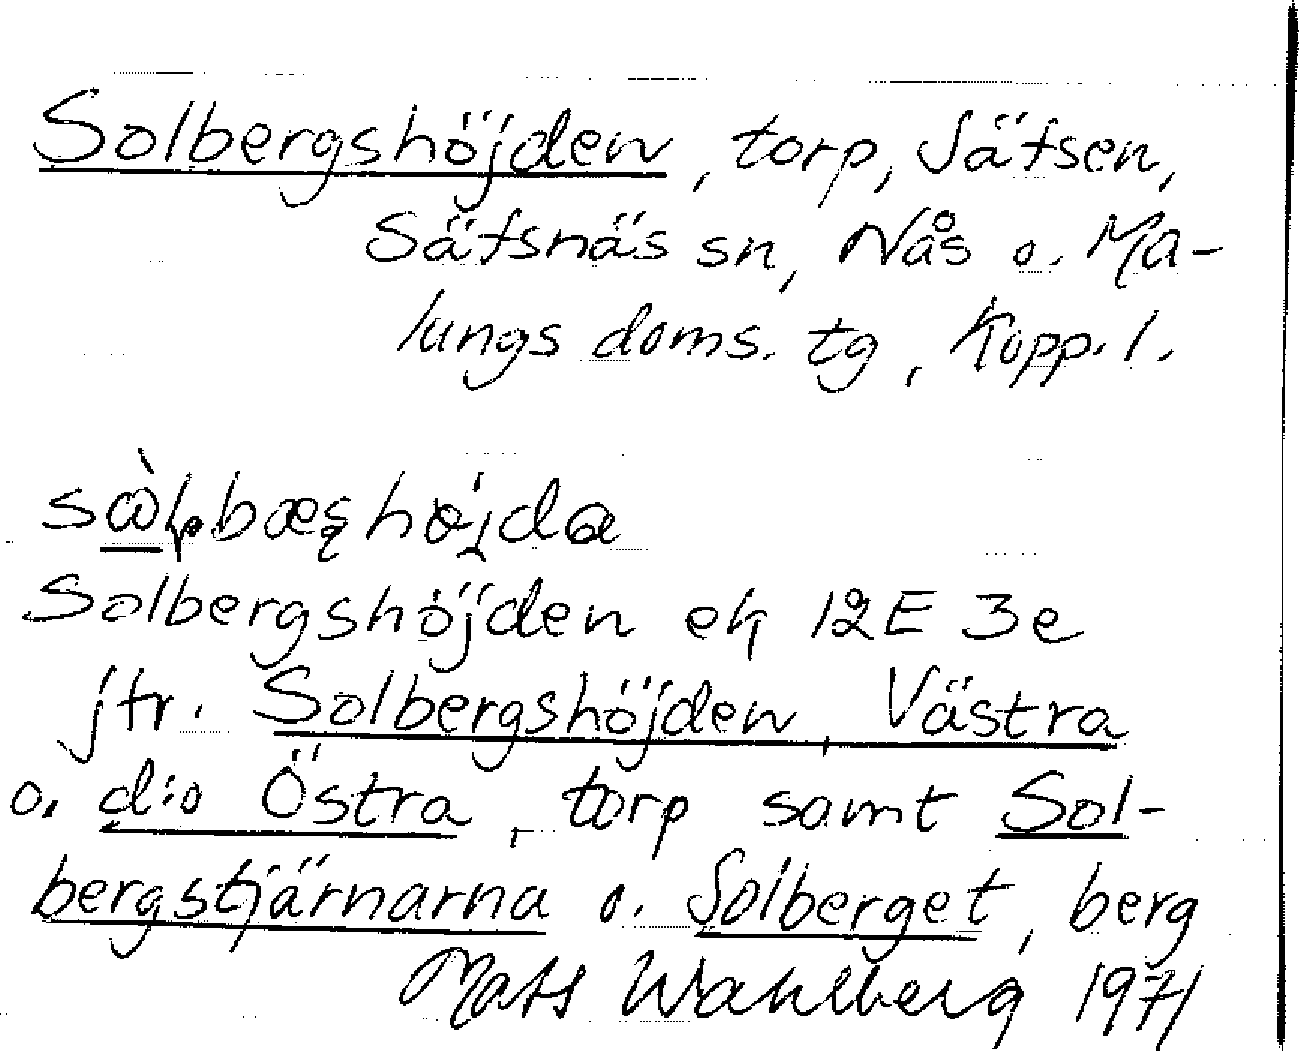 Solbergshöjden, torp, Säfsen,
Säfsnäs sn, Nås o. Ma-
lungs doms. tg, Kopp. l.
Solbergshöjden ek 12E 3e
jfr. Solbergshöjden, Västra
o. d:o Östra, torp samt Sol-
bergstjärnarna o. Solberget, berg
Mats Wahlberg 1971